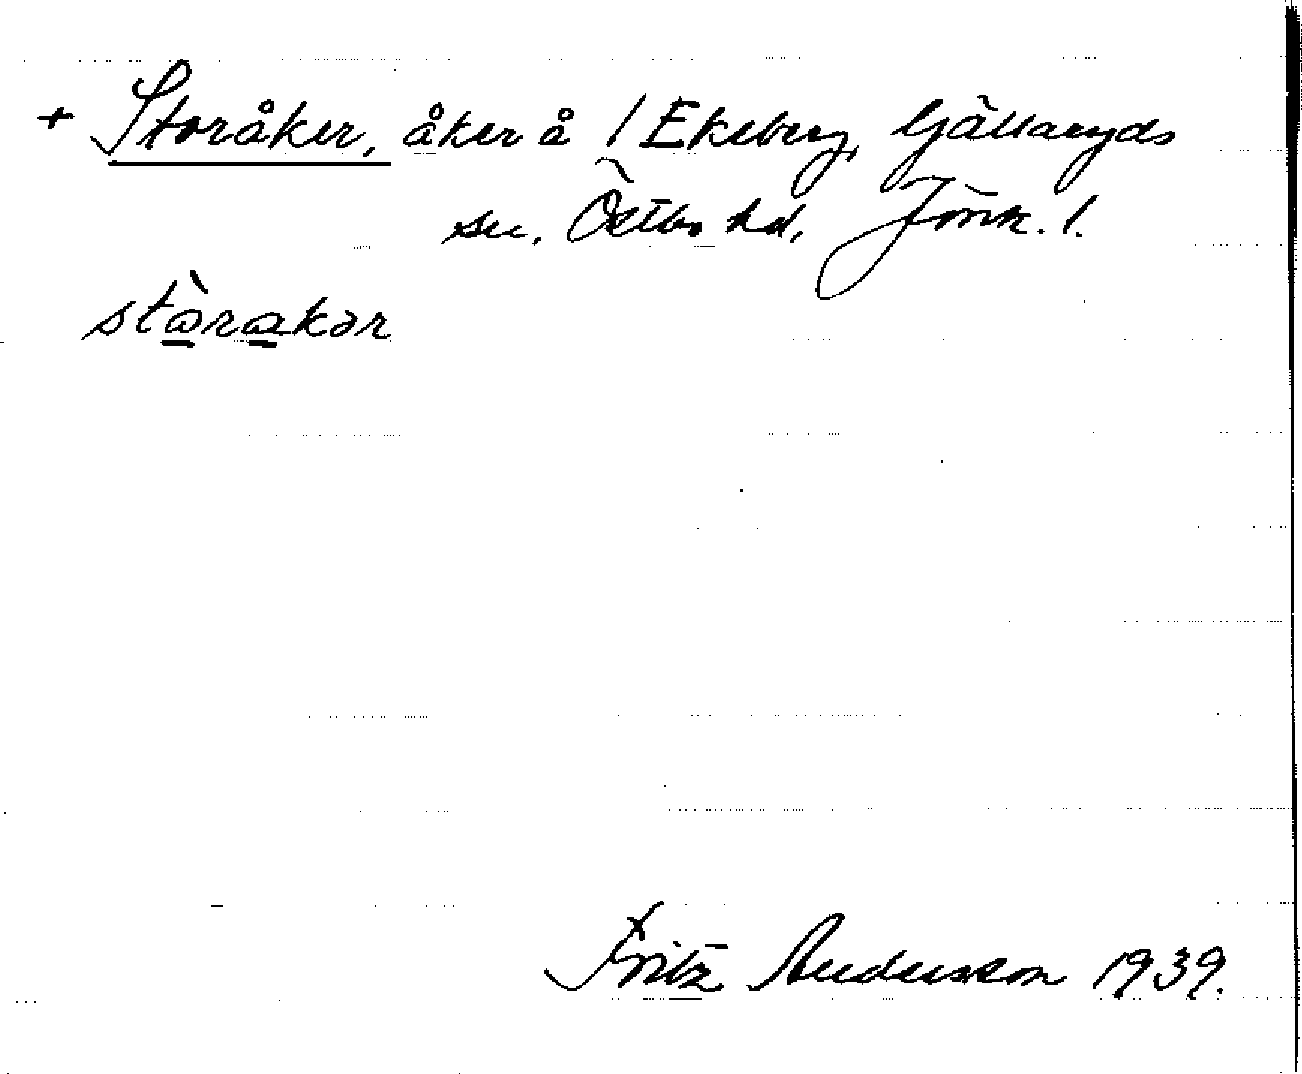 + Storåker, åker å /Ekeberg, Gällaryds
sn. Östbo hd, Jönk. l.
stàrakər
Fritz Andersson 1939.